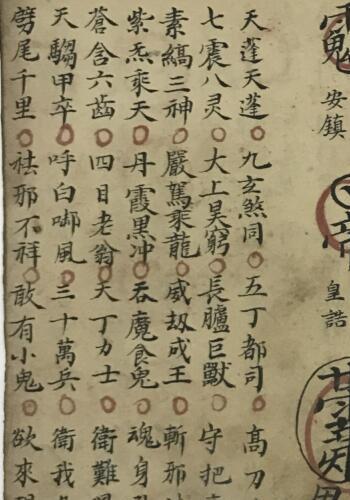 安鎮
皇誥
天蓬天蓬○九玄煞同○五丁都司○高刀
七震八灵○大上昊窮○長臚巨獸○守把
素縞三神○嚴駕乘龍○威刼成王○斬邪
紫炁乘天○丹霞黒冲○吞魔食鬼○魂身
蒼含六齒○四目老翁○天丁力士○衛難
天騶甲卒○呼白啣風○三十萬兵○衛我
劈尾千里○祛邪不祥○敢有小鬼○欲來